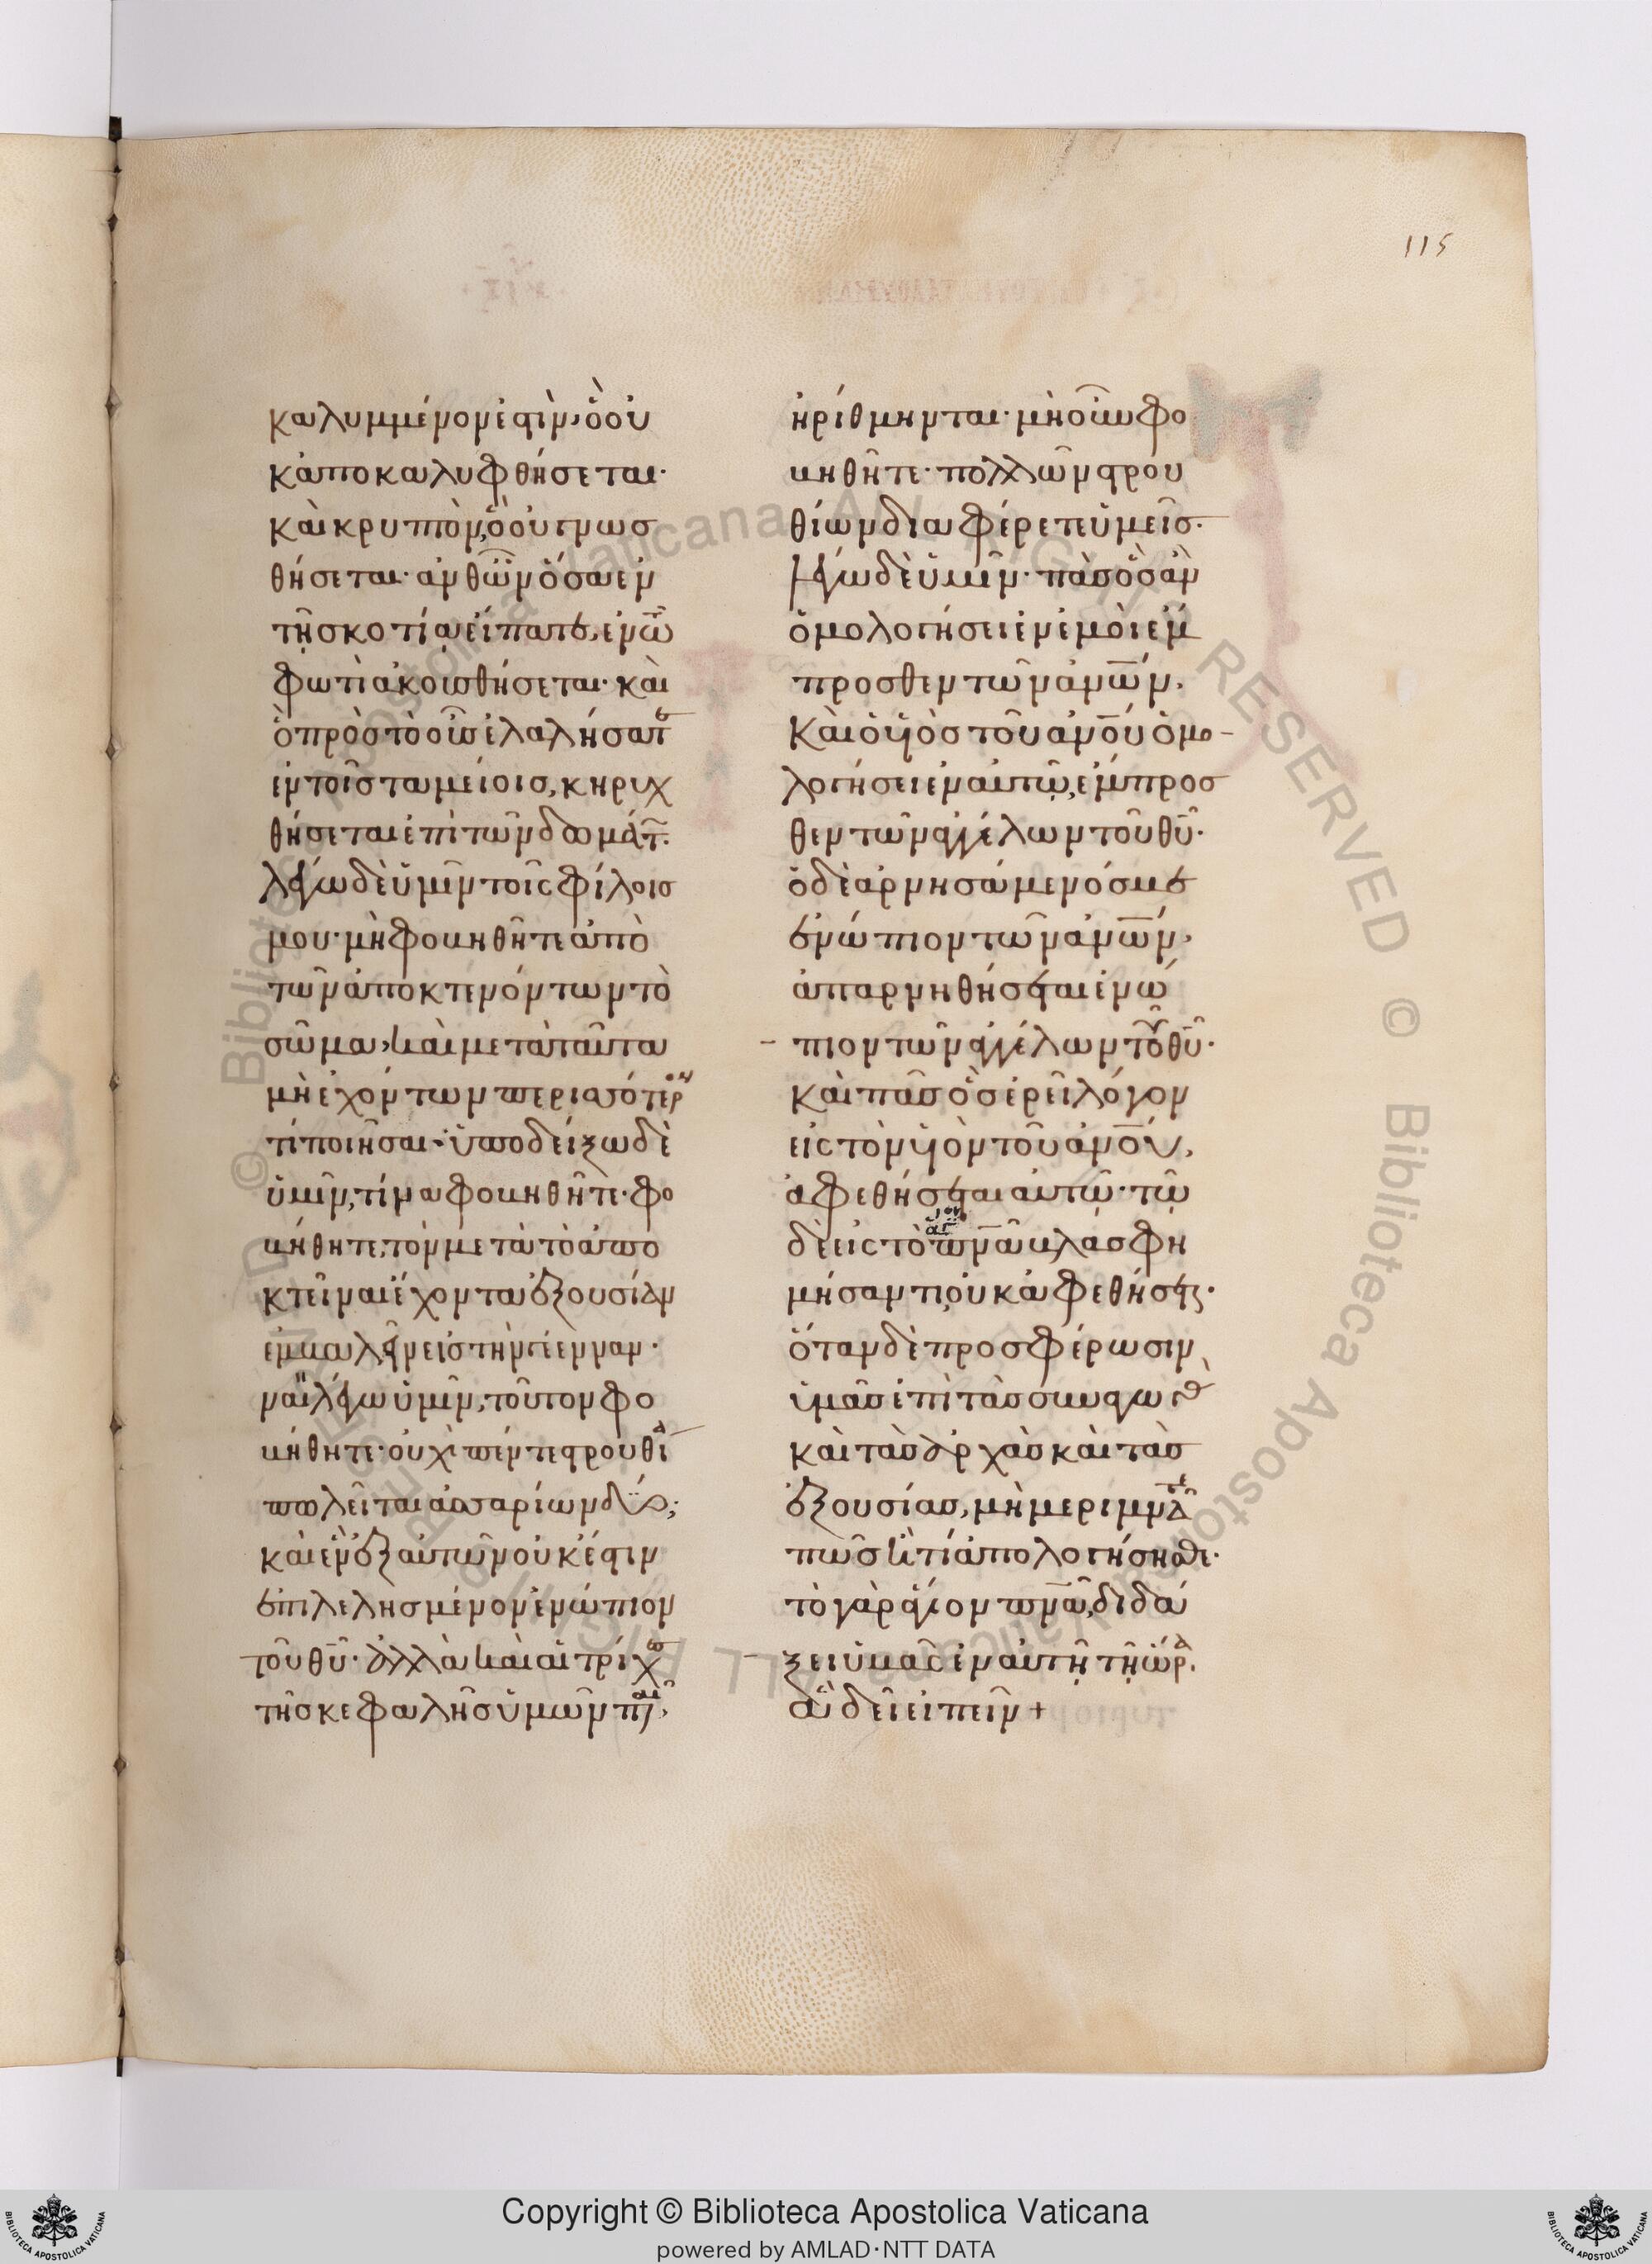 115
καλυμμένον ἐστὶν, ὃ οὐ
κ ἀποκαλυφθήσεται·
καὶ κρυπτὸν, ὃ οὐ γνωσ
θήσεται· ἀνθ ὧν ὅσα ἐν
τῇ σκοτίᾳ εἴπατε, ἐν τῶ
φωτὶ ἀκουσθήσεται· καὶ
ὃ πρὸς τὸ οὖς ἐλαλήσατε
ἐν τοῖς ταμείοις, κηρυχ
θήσεται ἐπὶ τῶν δωμάτ̅·
λέγω δὲ ὑμῖν τοῖς φίλοις
μου· μὴ φοβηθῆτε ἀπὸ
τῶν ἀποκτενόντων τὸ
σῶμα, καὶ μετὰ ταῦτα
μὴ ἐχόντων περισσότερον
τί ποιῆσαι· ὑποδείξω δὲ
ὑμῖν, τίνα φοβηθῆτε· φο
βήθητε, τὸν μετὰ τὸ ἀπο
κτεῖναι ἔχοντα ἐξουσίαν
ἐμβαλεῖν εἰς τὴν γέενναν·
ναὶ λέγω ὑμῖν, τοῦτον φο
βήθητε· οὐχὶ πέντε στρουθία
πωλεῖται ἀσσαρίων δύο;
καὶ ἓν ἐξ αὐτῶν οὐκ ἔστιν
ἐπιλελησμένον ἐνώπιον
τοῦ θ̅υ̅· ἀλλὰ καὶ αἱ τρίχες
τῆς κεφαλῆς ὑμῶν πᾶσαι,
ἠρίθμηνται· μὴ οὖν φο
βηθῆτε· πολλῶν στρου
θίων διαφέρετε ὑμεῖς·
λέγω δὲ ὑμῖν· πᾶς ὃς ἂν
ὁμολογήσει ἐν ἐμοὶ ἔμ
προσθεν τῶν ἀν̅ω̅ν,
καὶ ὁ υἱὸς τοῦ ἀν̅ο̅υ ὁμο-
λογήσει ἐν αὐτῶ, ἔμπροσ
θεν τῶν ἀγγέλων τοῦ θ̅υ̅·
ὁ δὲ ἀρνησάμενός με
ἐνώπιον τῶν ἀν̅ω̅ν,
ἀπαρνηθήσεται ἐνώ
πιον τῶν ἀγγέλων τοῦ θ̅υ̅·
καὶ πᾶς ὃς ἐρεῖ λόγον
εἰς τὸν υἱὸν τοῦ ἀν̅ο̅υ,
ἀφεθήσεται αὐτῶ· τῶ
δὲ εἰς τὸ ἅγιον πν̅α̅ βλασφη
μήσαντι, οὐκ ἀφεθήσεται·
ὅταν δὲ προσφέρωσιν
ὑμᾶς ἐπὶ τὰς συναγωγὰς
καὶ τὰς ἀρχὰς καὶ τὰς
ἐξουσίας, μὴ μεριμνᾶτε
πῶς ἢ τί ἀπολογήσησθε·
τὸ γὰρ ἅγιον πν̅α̅, διδά
ξει ὑμᾶς ἐν αὐτῇ τῇ ὥρα,
ἃ δεῖ εἰπεῖν +
Copyright © Biblioteca Apostolica Vaticana
powered by AMLAD·NTT DATA